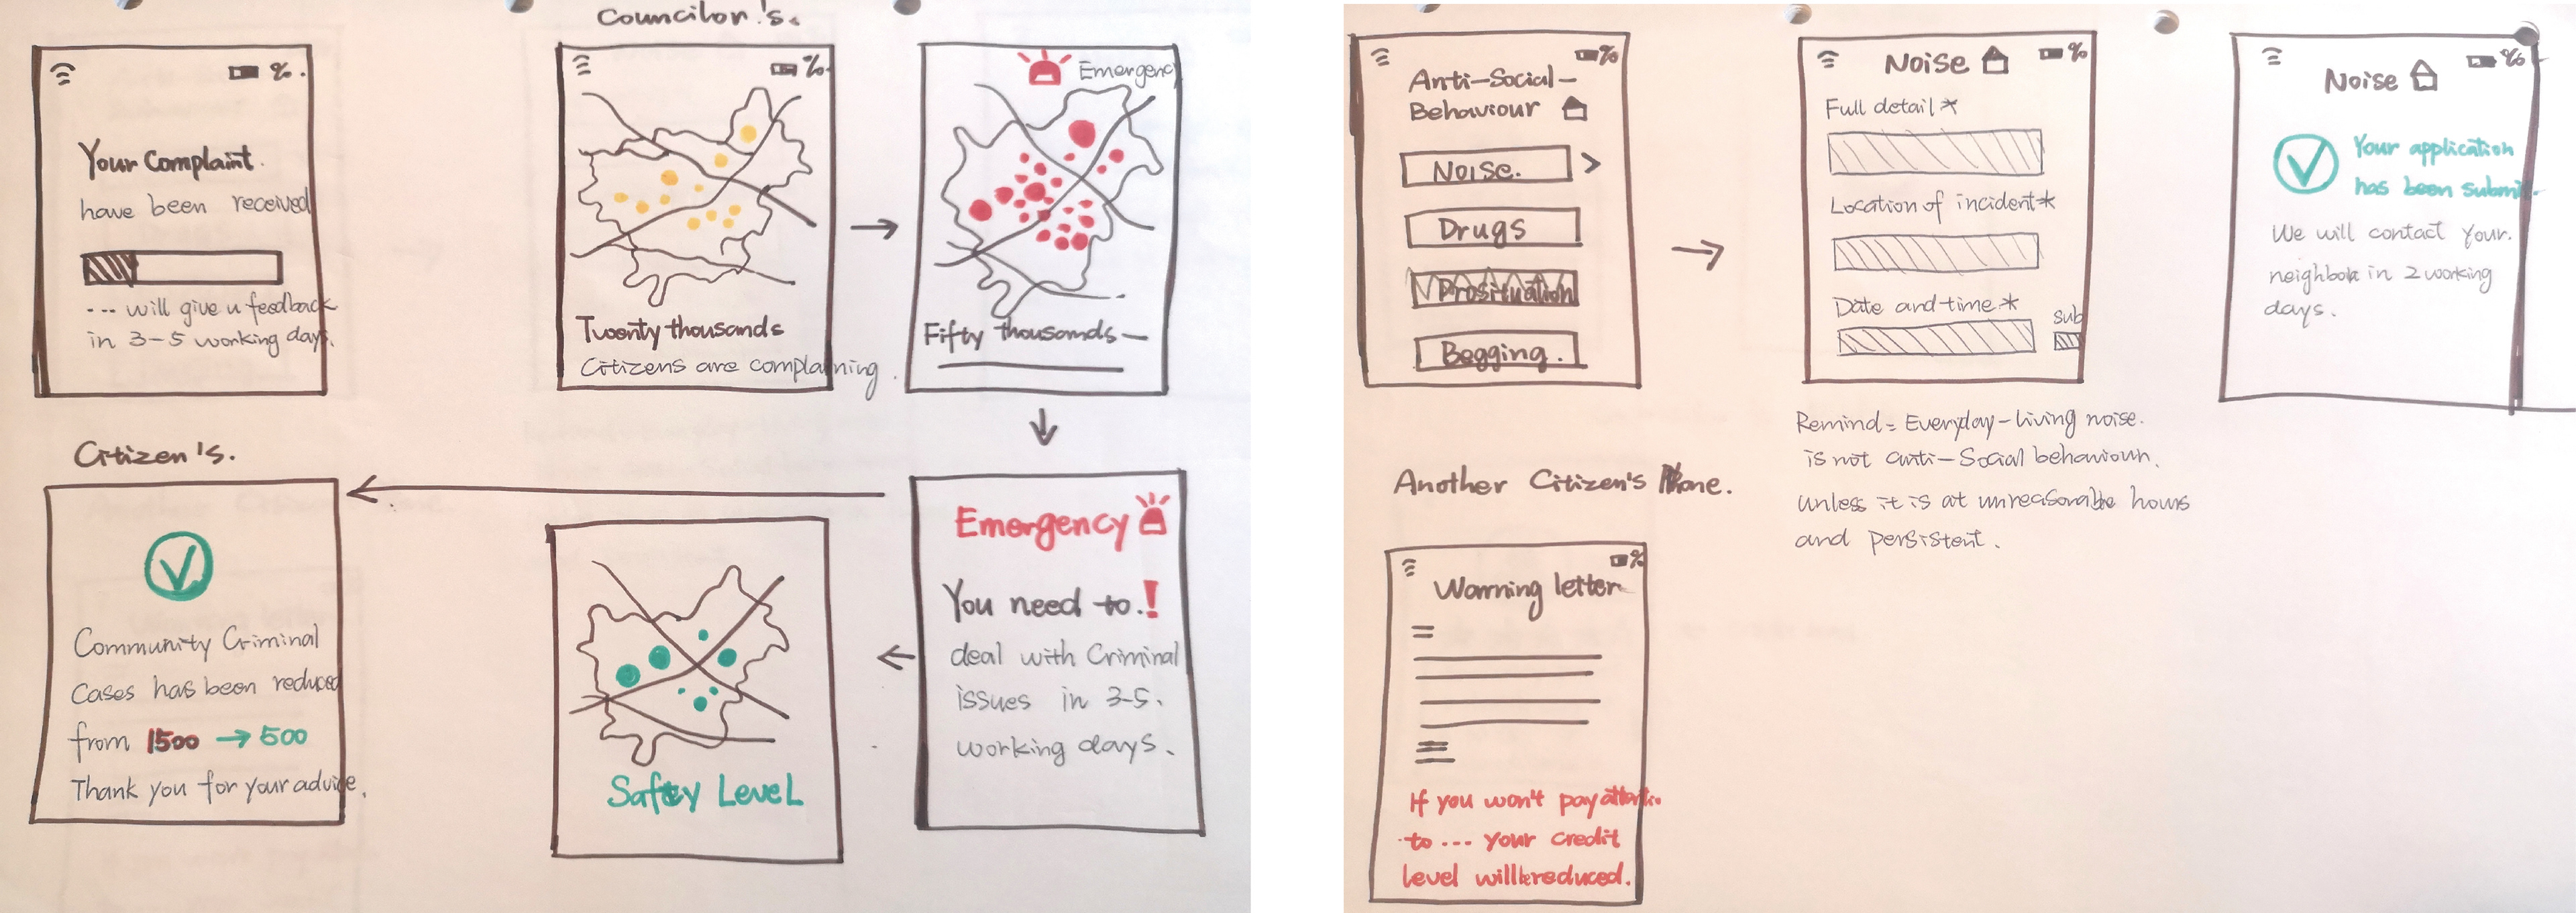 %.
Your Complaint.
have been received
--- will give u feedback
in 3-5 working days.
Councilor's.
%.
Twenty thousands
Citizens are complaining.
Emergency
Fifty thousands—
Emergency
You need to.!
deal with Criminal
issues in 3-5.
working days.
Safety Level
Citizen's.
Community Criminal
Cases has been reduced
from 1500 → 500
Thank you for your advice.
%
Anti-Social-
Behaviour
Noise. >
Drugs
Begging.
%
Noise
Full detail*
Location of incident*
Date and time*
sub
Remind: Everyday-living noise.
is not anti-Social behaviour.
unless it is at unreasonable hours
and persistent.
%
Noise
Your application
has been submit.
We will contact your.
neighbor in 2 working
days.
Another Citizen's Phone.
%
Warning letter
If you won't pay
to --- your credit
level will be reduced.